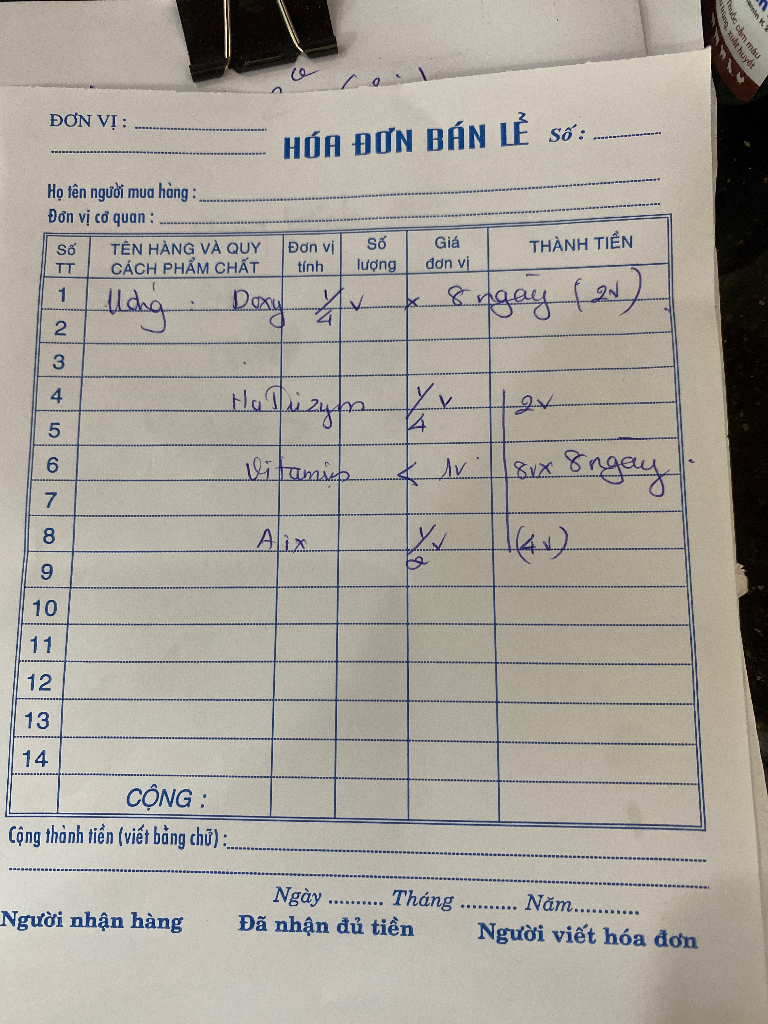 ĐƠN VỊ :
HÓA ĐƠN BÁN LẺ Số :
Họ tên người mua hàng :
Đơn vị cơ quan :
Số TT TÊN HÀNG VÀ QUY CÁCH PHẨM CHẤT Đơn vị tính Số lượng Giá đơn vị THÀNH TIỀN
1 Uống . Doxy 1/4 v x 8 ngày (2v).
2
3
4 HaDuzym 1/4 v 2v
5
6 Vitamin C 1v 8v x 8 ngày.
7
8 Aix 1/2 v (4v)
9
10
11
12
13
14
CỘNG :
Cộng thành tiền (viết bằng chữ) :
Ngày .......... Tháng .......... Năm...........
Người nhận hàng Đã nhận đủ tiền Người viết hóa đơn